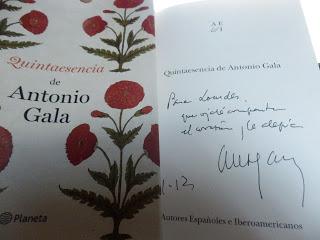 Quintaesencia
de
Antonio
Gala
Planeta
A E
& I
Quintaesencia de Antonio Gala
Para Lourdes,
que ojalá comparta
el corazón y la alegría
Autores Españoles e Iberoamericanos